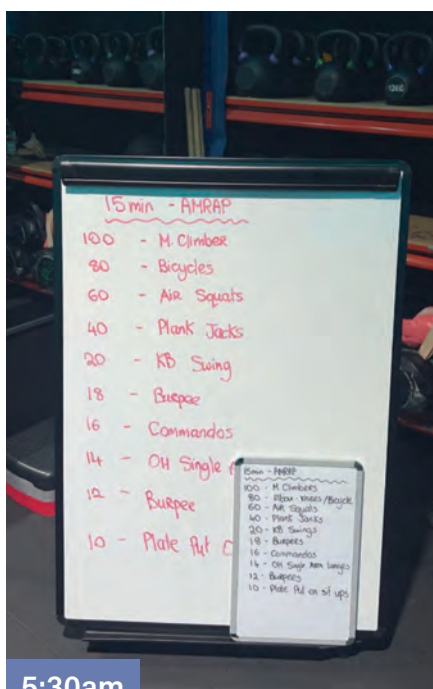 15min - AMRAP
100 - M. Climber
80 - Bicycles
60 - Air Squats
40 - Plank Jacks
20 - KB Swing
18 - Burpee
16 - Commandos
14 - OH Single
12 - Burpee
10 - Plate Put
15min - AMRAP
100 - M Climbers
80 - Knees/Bicycle
60 - Air Squats
40 - Plank Jacks
20 - KB Swings
18 - Burpees
16 - Commandos
14 - OH Single Arm Lunges
12 - Burpees
10 - Plate Put on sit ups
5:30am